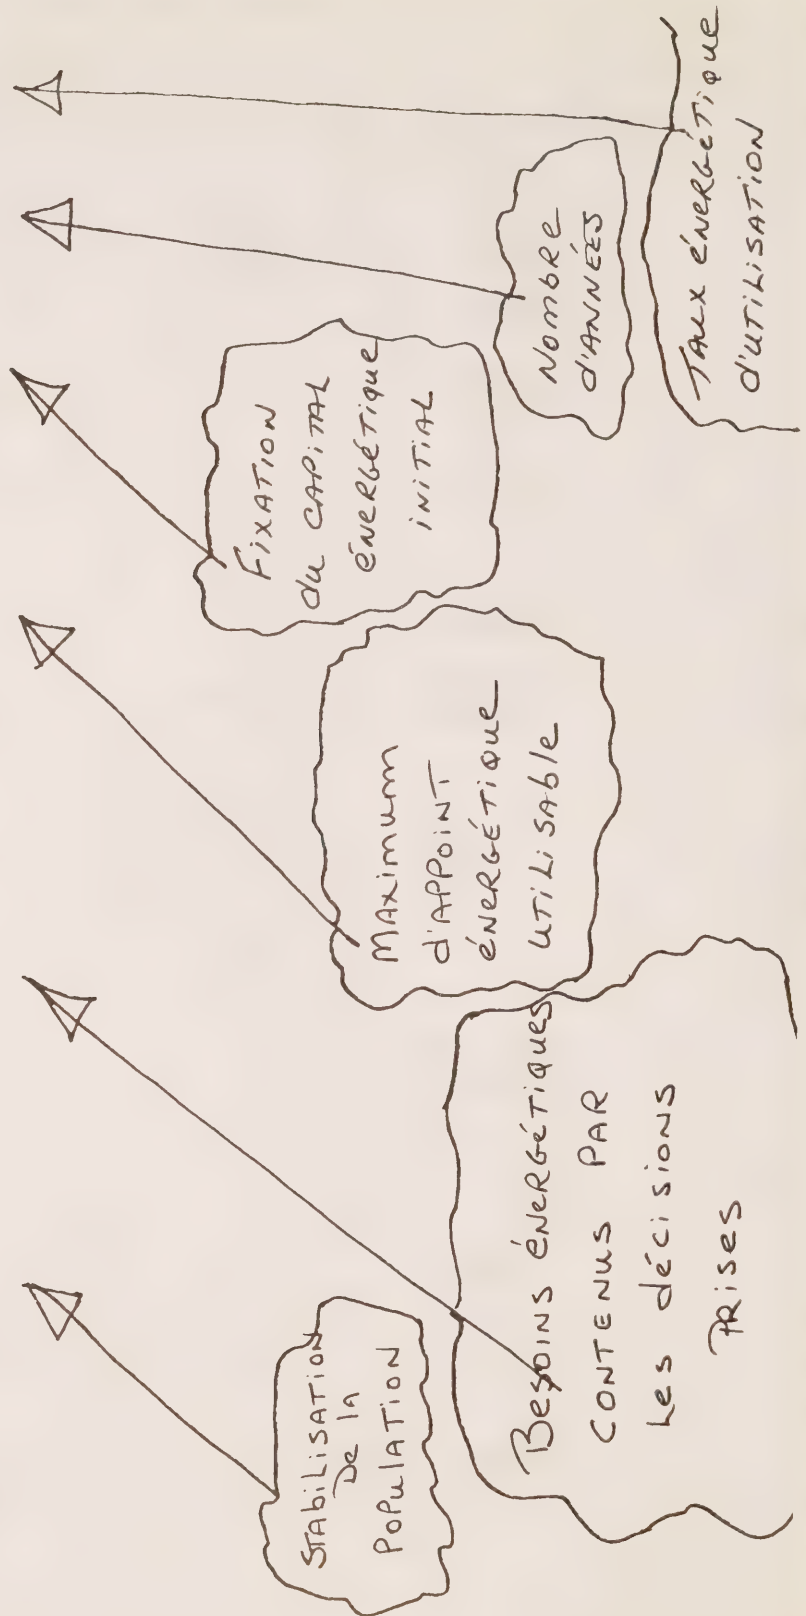 STABILISATION
De la
POPULATION
Besoins énergétiques
CONTENUS PAR
Les décisions
PRISES
MAXIMUM
d'APPOINT
énergétique
utilisable
Fixation
du CAPITAL
énergétique
initial
Nombre
d'années
Taux énergétique
d'utilisation